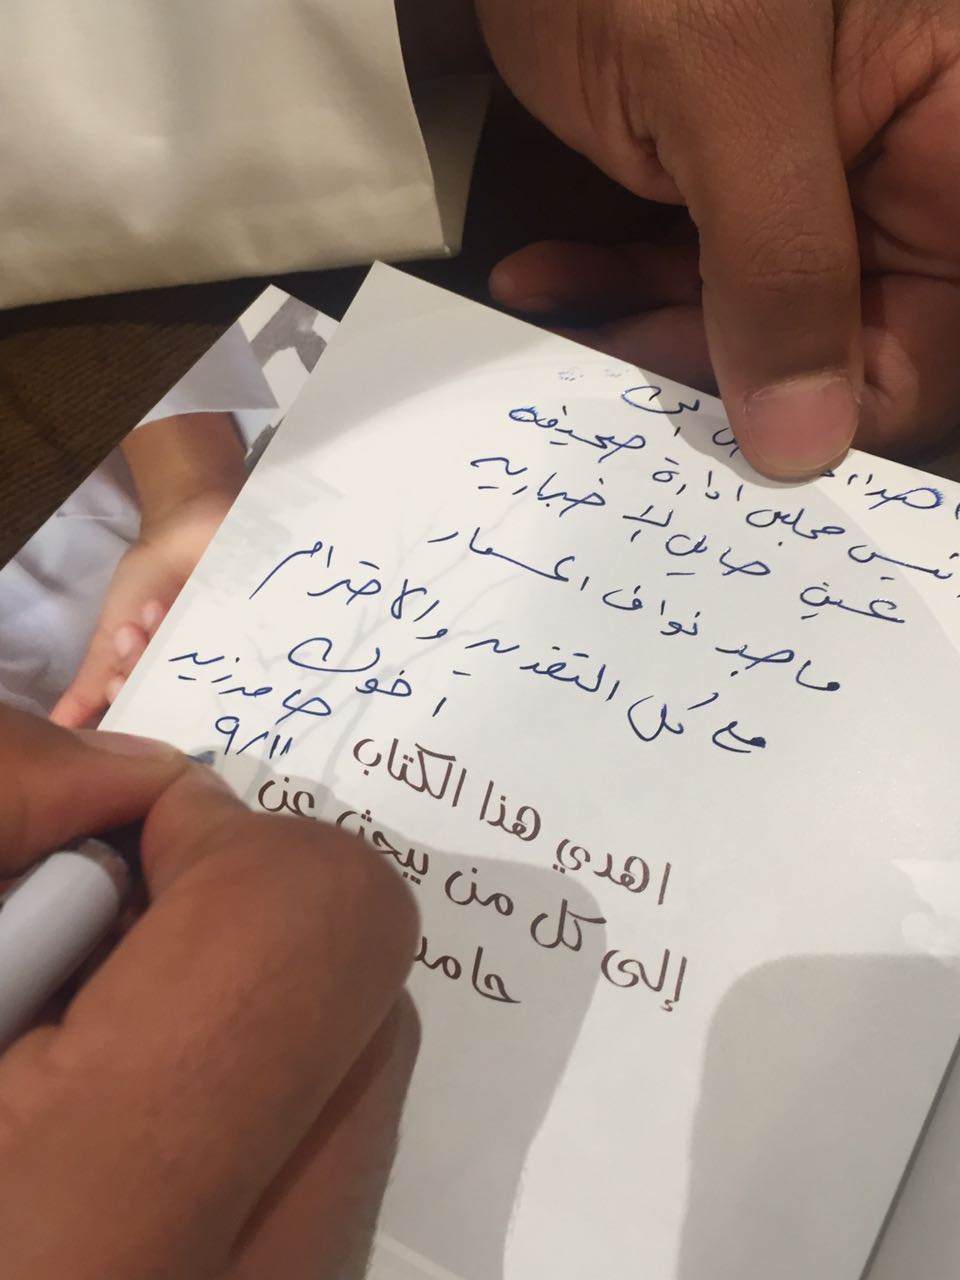 اهداء الى
رئيس مجلس ادارة صحيفة
عين حايل الاخبارية
ماجد نواف المسمار
مع كل التقدير والاحترام
اخوك
حامد زيد
٩/١١
اهدي هذا الكتاب
إلى كل من يبحث عن
حامد